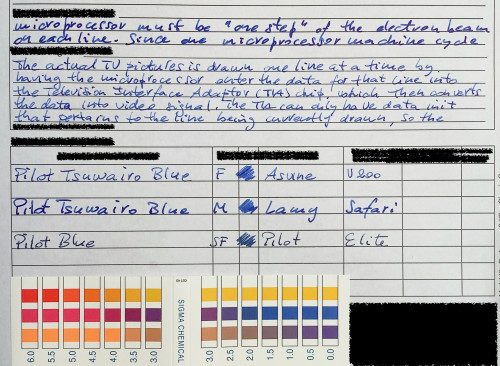 microprocessor must be "one step" of the electron beam
on each line. Since one microprocessor machine cycle
The actual TV pictures is drawn one line at a time by
having the microprocessor enter the data for that line into
the Television Interface Adaptor (TIA) chip, which then converts
the data into video signal. The TIA can only have data in it
that pertains to the line being currently drawn, so the
Pilot Tsuwairo Blue F Asvine V200
Pilot Tsuwairo Blue M Lamy Safari
Pilot Blue SF Pilot Elite
SIGMA CHEMICAL
6.0 5.5 5.0 4.5 4.0 3.5 3.0
3.0 2.5 2.0 1.5 1.0 0.5 0.0